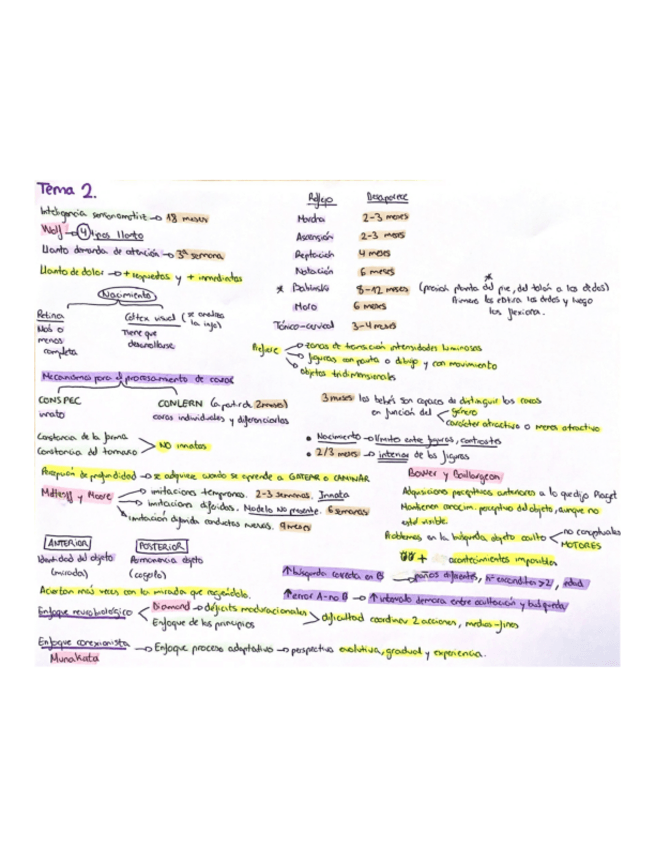 Tema 2.
Inteligencia sensoriomotriz → 18 meses
Wolf → 4 tipos llanto
llanto demanda de atención → 3ª semana
llanto de dolor → + respuestas y + inmediatas
Nacimiento
Retina
Más o
menos
completa
Córtex visual (se analiza
la info)
Tiene que
desarrollarse
Reflejo Desaparece
Marcha 2-3 meses
Ascensión 2-3 meses
Reptación 4 meses
Natación 6 meses
* Babinski 8-12 meses (presión planta del pie, del talón a los dedos)
* Primero los estira los dedos y luego
los flexiona.
Moro 6 meses
Tónico-cervical 3-4 meses
Prefiere → zonas de transición intensidades luminosas
→ figuras con pauta o dibujo y con movimiento
→ objetos tridimensionales
Mecanismos para el procesamiento de caras
CONSPEC
innato
CONLERN (a partir de 2 meses)
caras individuales y diferenciarlas
3 meses los bebés son capaces de distinguir las caras
en función del < género
carácter atractivo o menos atractivo
Constancia de la forma
Constancia del tamaño > NO innatas
• Nacimiento → límites entre figuras, contrastes
• 2/3 meses → interior de las figuras
Percepción de profundidad → se adquiere cuando se aprende a GATEAR o CAMINAR
Meltzoff y Moore → imitaciones tempranas. 2-3 semanas. Innata
→ imitaciones diferidas. Modelo No presente. 6 semanas
→ imitación diferida conductas nuevas. 9 meses
Bower y Baillargeon
Adquisiciones perceptivas anteriores a lo que dijo Piaget
Mantienen conocim. perceptivo del objeto, aunque no
esté visible.
Problemas en la búsqueda objeto oculto < no conceptuales
MOTORES
+ acontecimientos imposibles
ANTERIOR
Identidad del objeto
(mirada)
POSTERIOR
Permanencia objeto
(cogerlo)
Aciertan más veces con la mirada que cogiéndolo.
↑ búsqueda correcta en B → paños diferentes, nº escondites > 2, edad
↑ error A-no B → ↑ intervalo demora entre ocultación y búsqueda
Enfoque neurobiológico < Diamond → déficits maduracionales
Enfoque de los principios
> dificultad coordinar 2 acciones, medios-fines
Enfoque conexionista → Enfoque proceso adaptativo → perspectiva evolutiva, gradual y experiencia.
Munakata